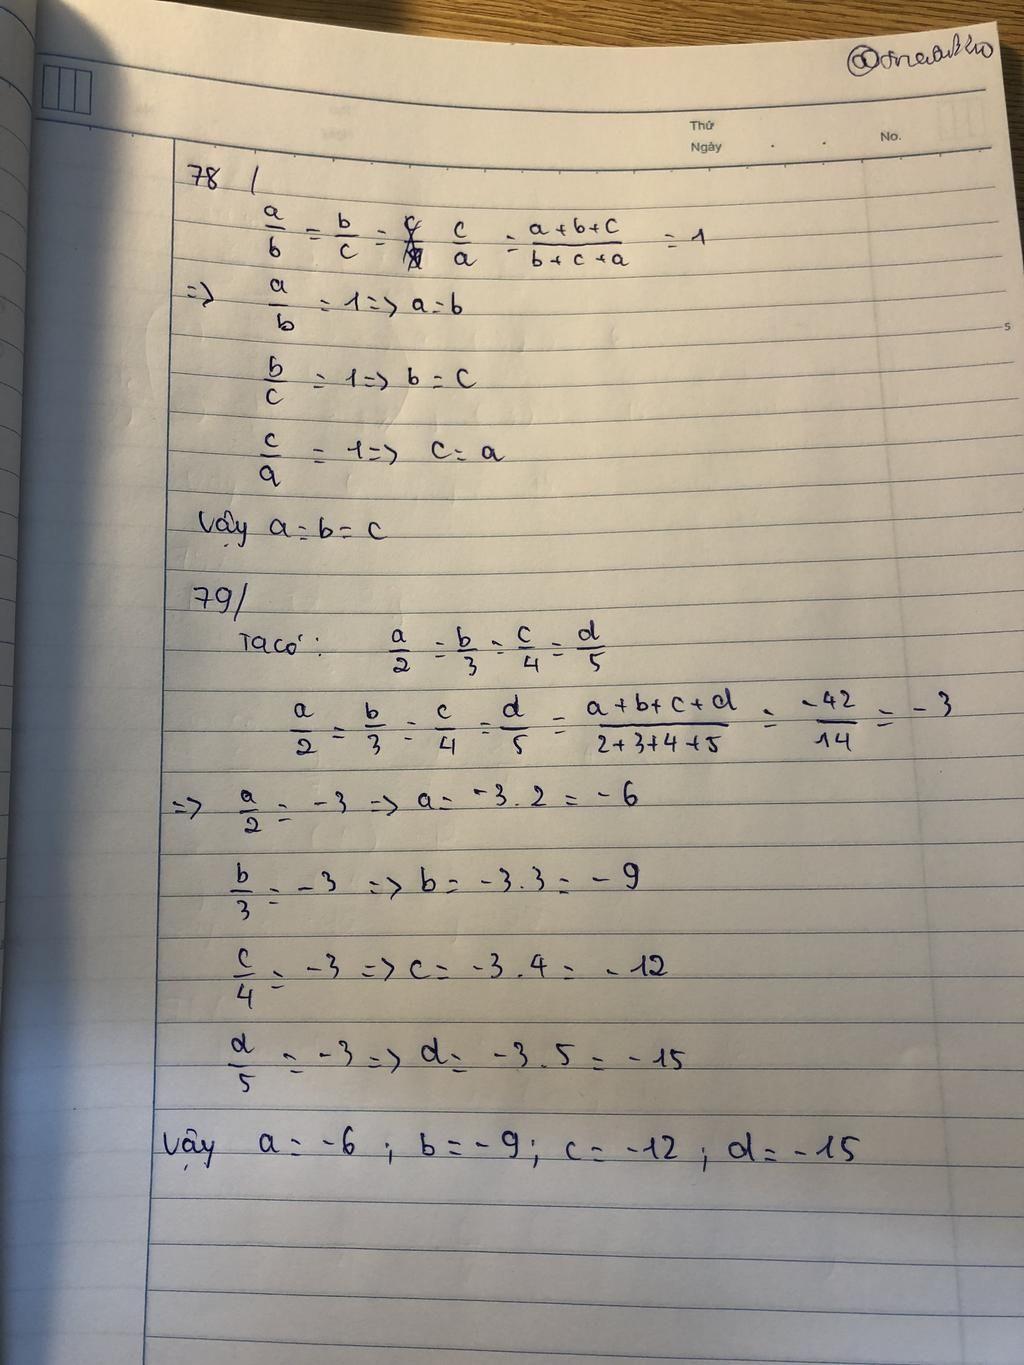 Thứ
Ngày . . No.
78 /
a/b = b/c = c/a = (a+b+c)/(b+c+a) = 1
=> a/b = 1 => a = b
5
b/c = 1 => b = c
c/a = 1 => c = a
Vậy a = b = c
79/
Ta có : a/2 = b/3 = c/4 = d/5
a/2 = b/3 = c/4 = d/5 = (a+b+c+d)/(2+3+4+5) = -42/14 = -3
=> a/2 = -3 => a = -3.2 = -6
b/3 = -3 => b = -3.3 = -9
c/4 = -3 => c = -3.4 = -12
d/5 = -3 => d = -3.5 = -15
Vậy a = -6 ; b = -9 ; c = -12 ; d = -15